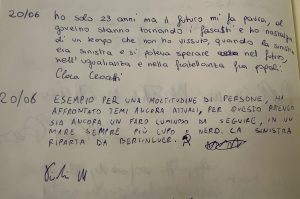 20/06 ho solo 23 anni ma il futuro mi fa paura, al
governo stanno tornando i fascisti e ho nostalgia
di un tempo che non ho vissuto, quando la sinistra
era sinistra e si poteva sperare nel futuro,
nell'uguaglianza e nella fratellanza fra popoli.
Clara
20/06 ESEMPIO PER UNA MOLTITUDINE DI PERSONE, HA
AFFRONTATO TEMI ANCORA ATTUALI, PER QUESTO RITENGO
SIA ANCORA UN FARO LUMINOSO DA SEGUIRE, IN UN
MARE SEMPRE PIÙ CUPO E NERO. LA SINISTRA
RIPARTA DA BERLINGUER.